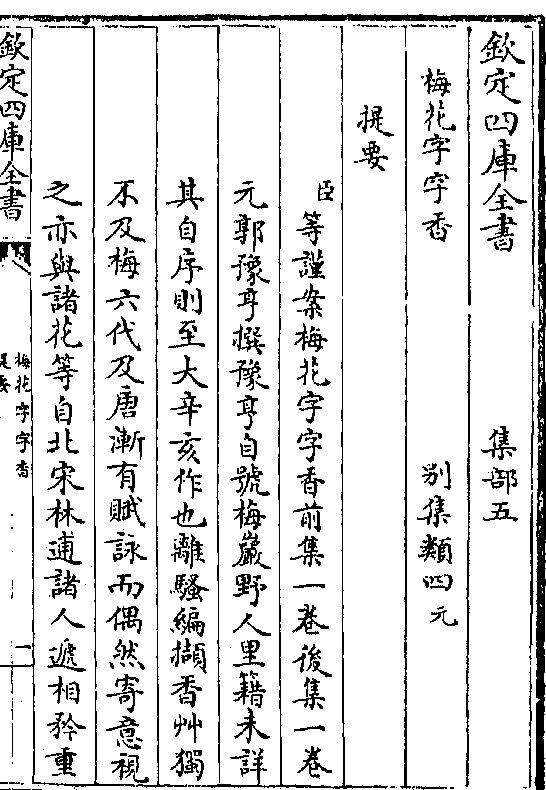 欽定四庫全書 集部五
梅花字字香 別集類四元
提要
臣等謹案梅花字字香前集一卷後集一卷
元郭豫亨撰豫亨自號梅巖野人里籍未詳
其自序則至大辛亥作也離騷編擷香艸獨
不及梅六代及唐漸有賦詠而偶然寄意視
之亦與諸花等自北宋林逋諸人遞相矜重
欽定四庫全書
梅花字字香
提要
一